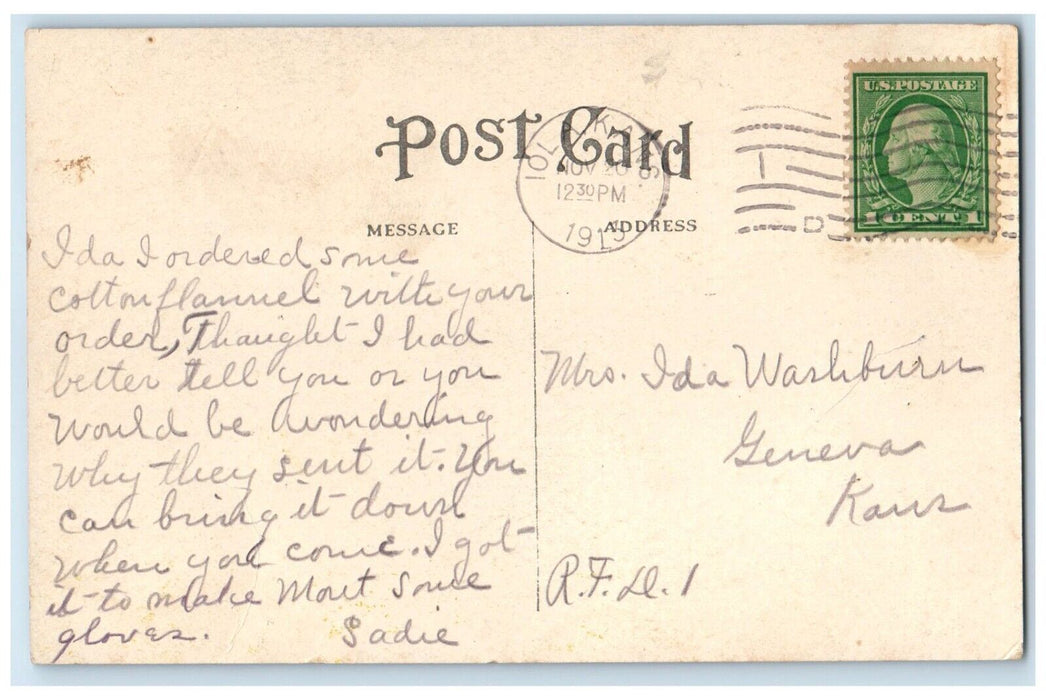 Post Card
IOLA, KANS
NOV 20
12 30 PM
1915
U.S. POSTAGE
1 CENT 1
MESSAGE
ADDRESS
Ida I ordered some
cotton flannel with your
order, Thaught I had
better tell you or you
would be wondering
why they sent it. You
can bring it down
when you come. I got
it to make Mont some
gloves.
Sadie
Mrs. Ida Washburn
Geneva
Kans
R.F.D. 1